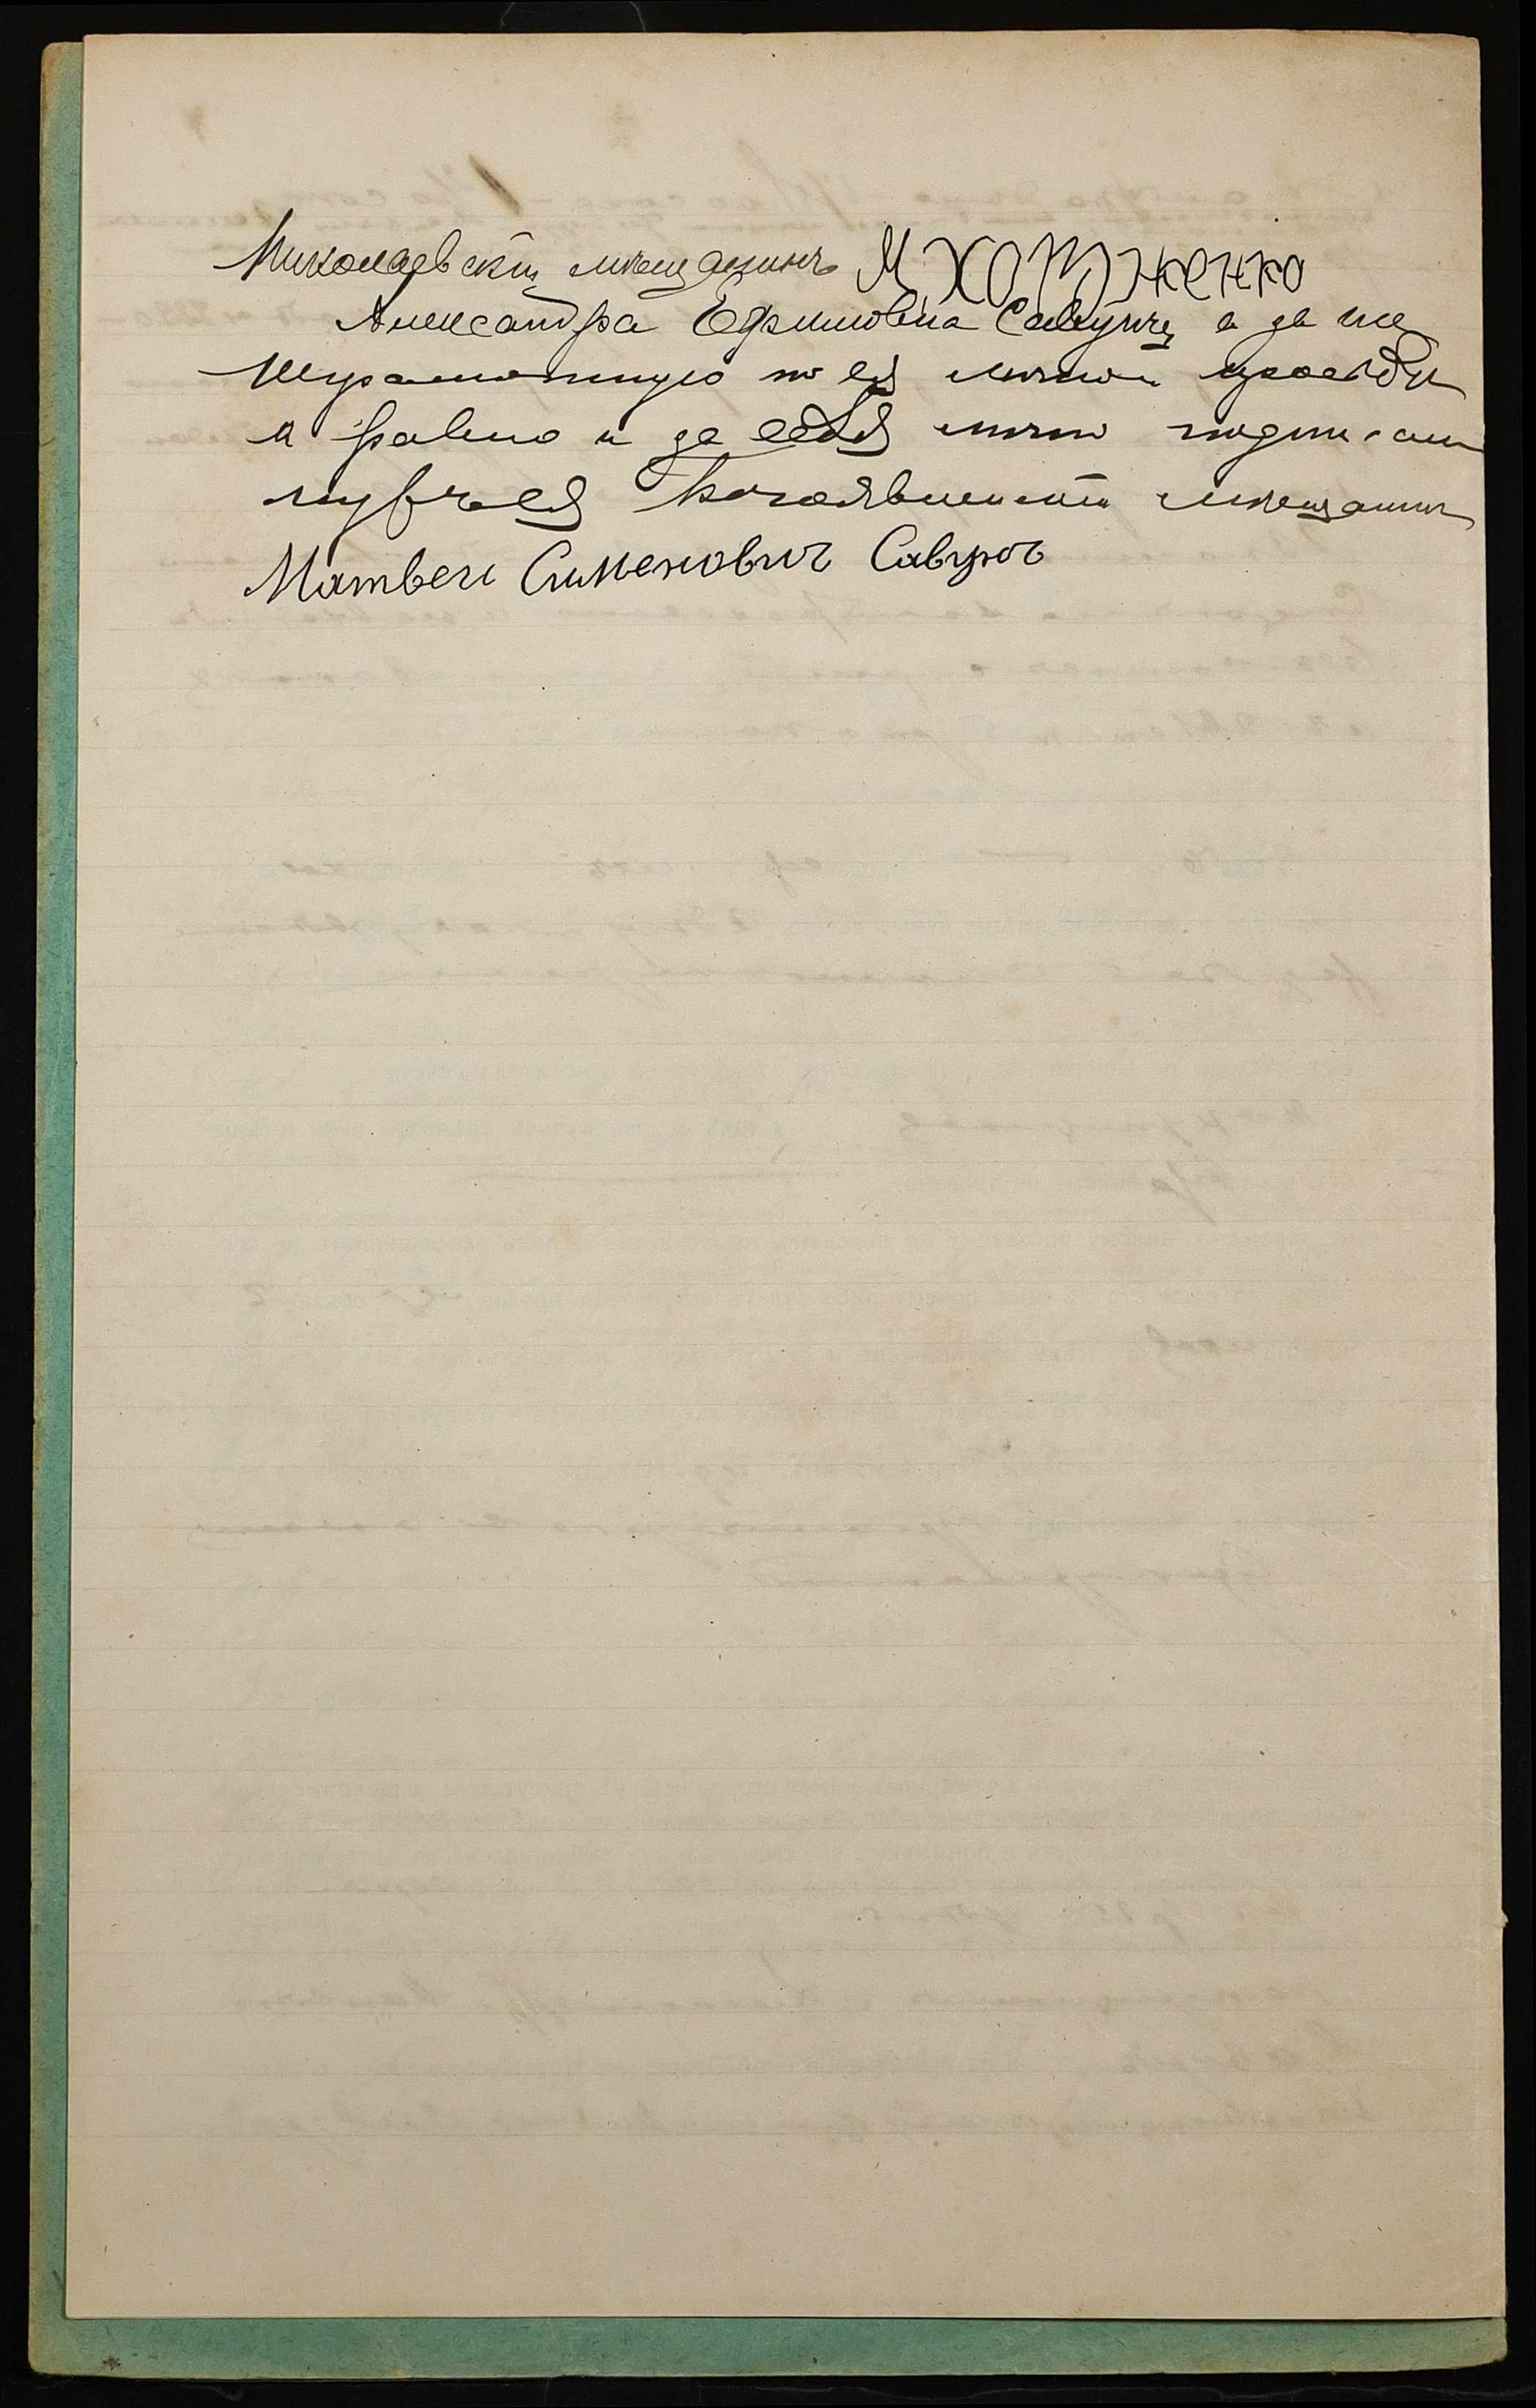 Николаевскій мѣщанинъ М Хотженко
Александра Ефимовна Савукъ а за нее
неграмотную по ея личной просьбѣ
а равно и за себя лично подписалъ
мужъ ея Богоявленскій мѣщанинъ
Матвей Сименовичъ Савукъ